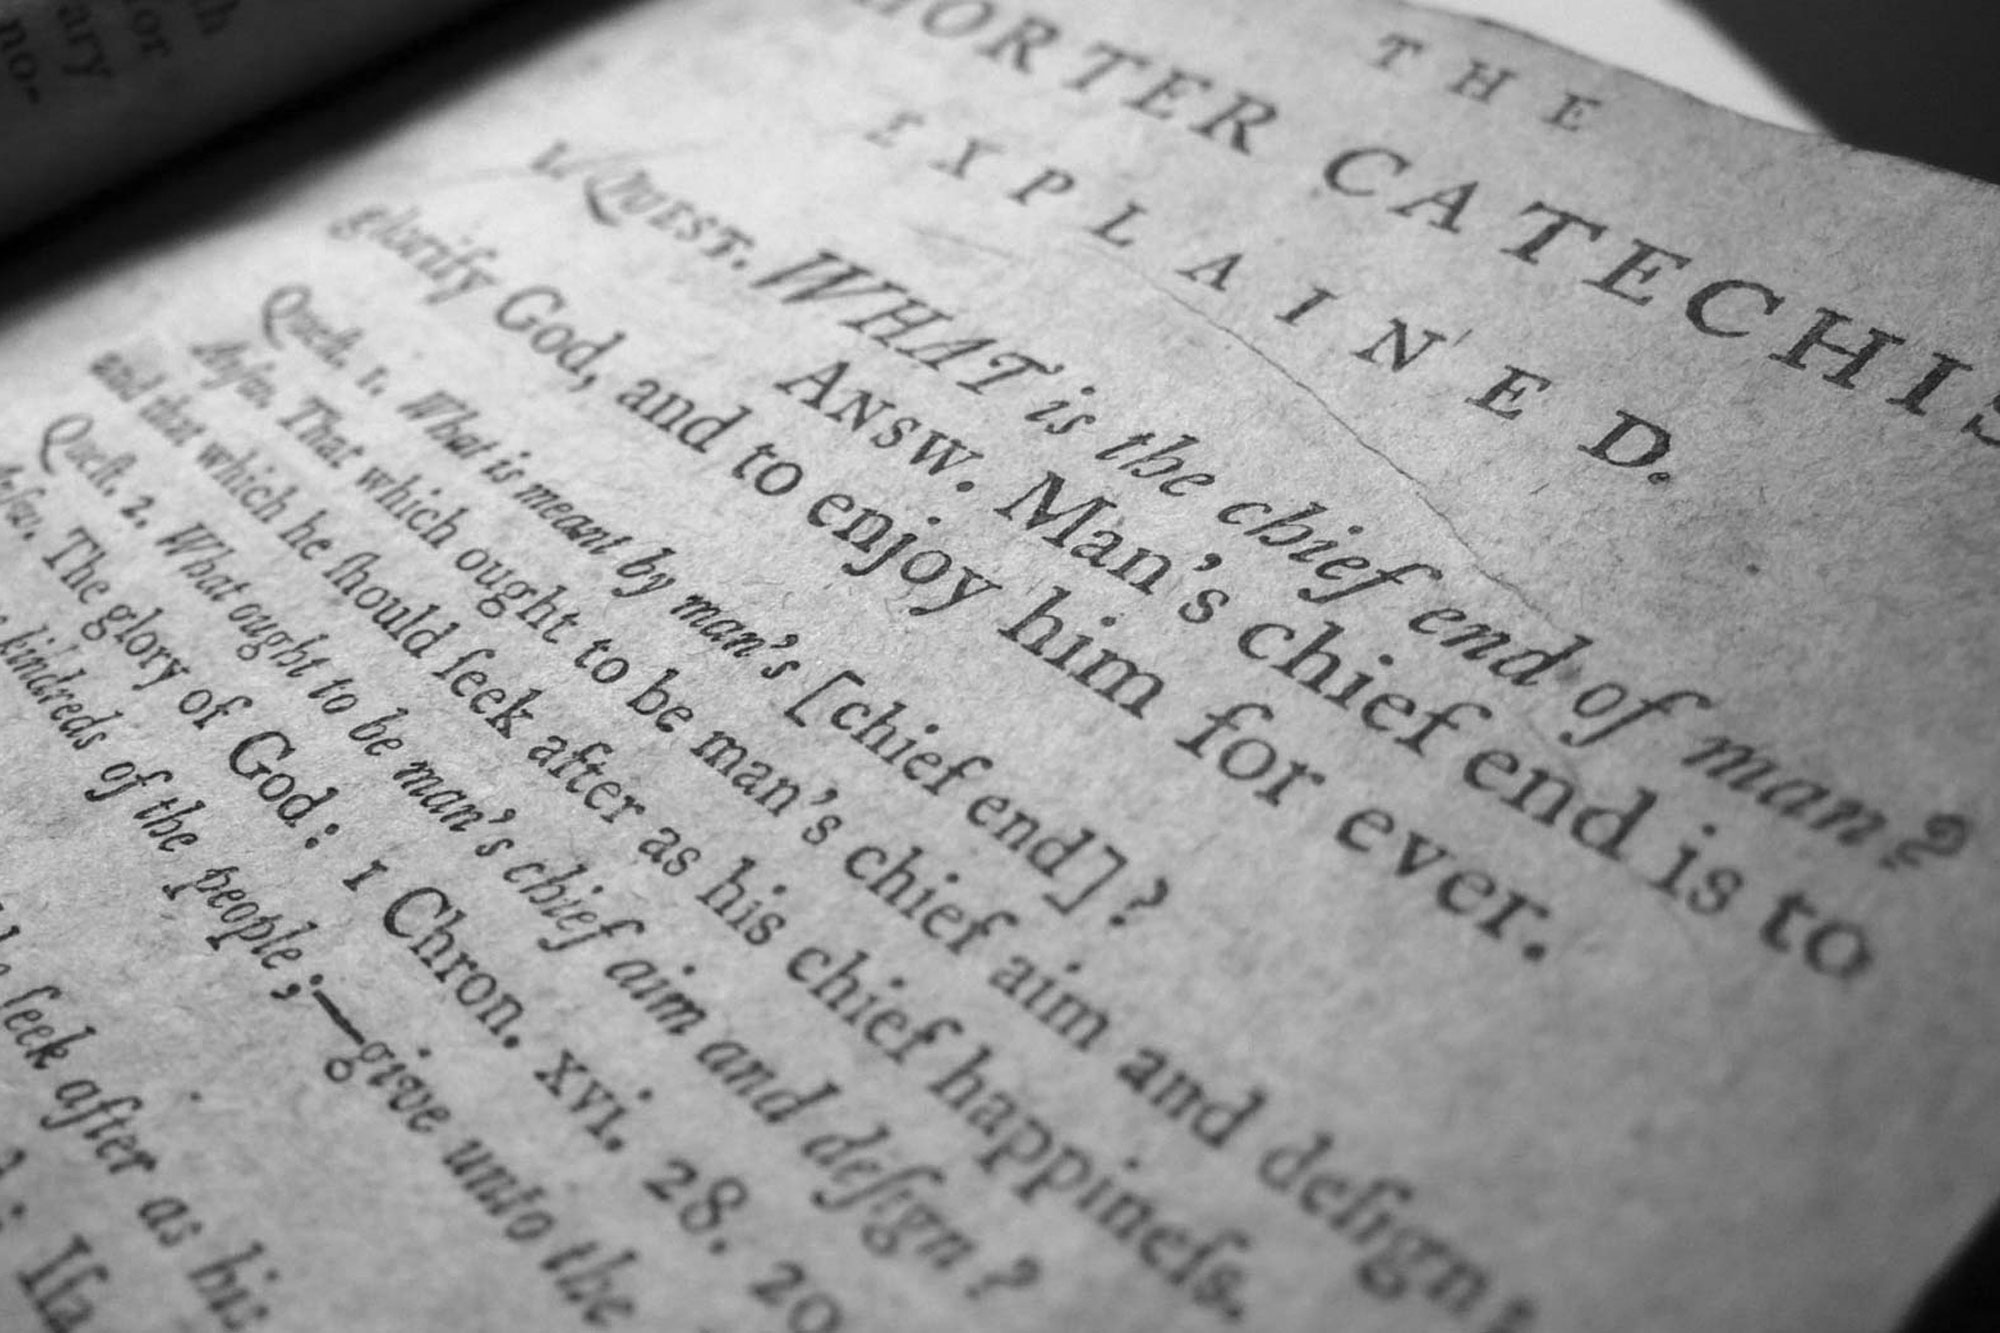 th
ior
ary
no.
THE
HORTER CATECHIS
EXPLAINED.
1. QUEST. WHAT is the chief end of man?
ANSW. Man's chief end is to
glorify God, and to enjoy him for ever.
Queſt. 1. What is meant by man's [chief end]?
Anſw. That which ought to be man's chief aim and deſign;
and that which he ſhould ſeek after as his chief happineſs.
Queſt. 2. What ought to be man's chief aim and deſign?
Anſw. The glory of God: 1 Chron. xvi. 28. 29
kindreds of the people;—give unto the
ſeek after as his
Iſa